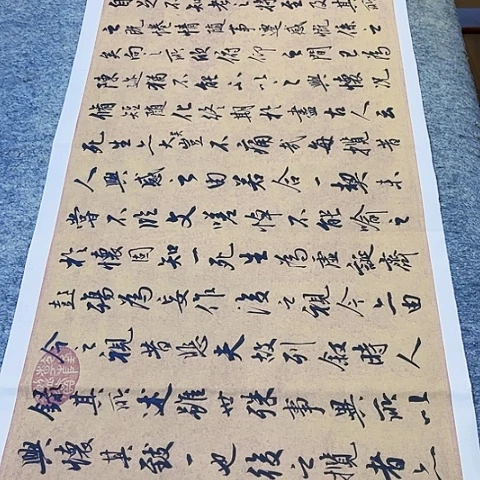 自足不知老之將至及其所
之既惓情隨事遷感慨係之
矣向之所欣俛仰之間已為
陳迹猶不能不以之興懷況
脩短隨化終期於盡古人云
死生亦大矣豈不痛哉每攬昔
人興感之由若合一契未
嘗不臨文嗟悼不能喻之
於懷固知一死生為虛誕齊
彭殤為妄作後之視今亦由
今之視昔悲夫故列敘時人
錄其所述雖世殊事異所以
興懷其致一也後之攬者亦